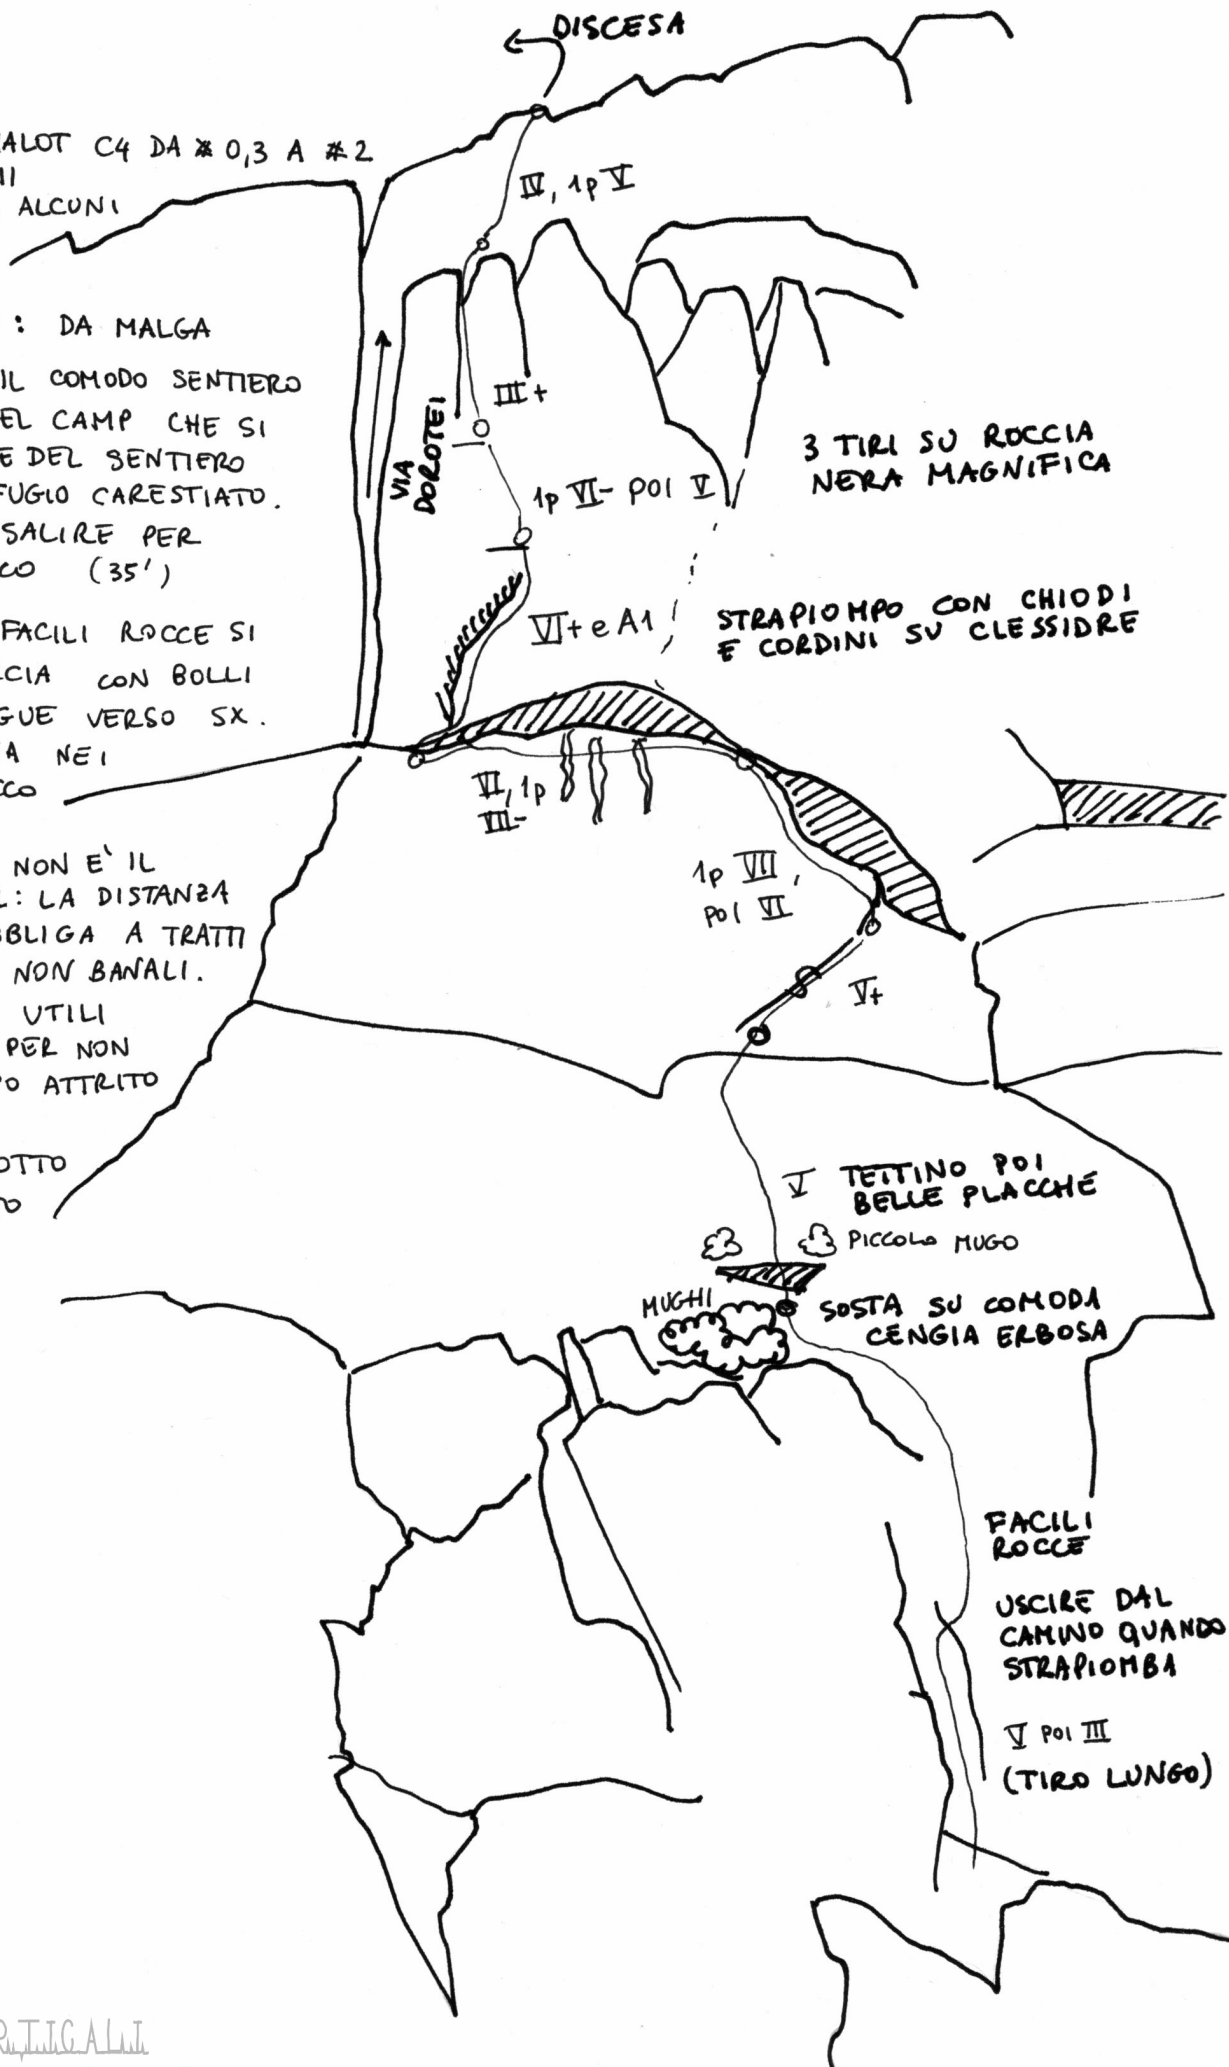 DISCESA
C4 DA # 0,3 A # 2
ALCUNI
IV, 1p V
: DA MALGA
IL COMODO SENTIERO
CAMP CHE SI
DEL SENTIERO
CARESTIATO.
SALIRE PER
(35')
FACILI ROCCE SI
CON BOLLI
VERSO SX.
NEI
NON E' IL
: LA DISTANZA
A TRATTI
NON BANALI.
UTILI
PER NON
ATTRITO
VIA
DOROTEI
III+
1p VI- POI V
3 TIRI SU ROCCIA
NERA MAGNIFICA
VI+ e A1
STRAPIOMPO CON CHIODI
E CORDINI SU CLESSIDRE
VI, 1p
VII-
1p VII,
POI VI
V+
V TETTINO POI
BELLE PLACCHE
PICCOLO MUGO
MUGHI
SOSTA SU COMODA
CENGIA ERBOSA
FACILI
ROCCE
USCIRE DAL
CAMINO QUANDO
STRAPIOMBA
V POI III
(TIRO LUNGO)